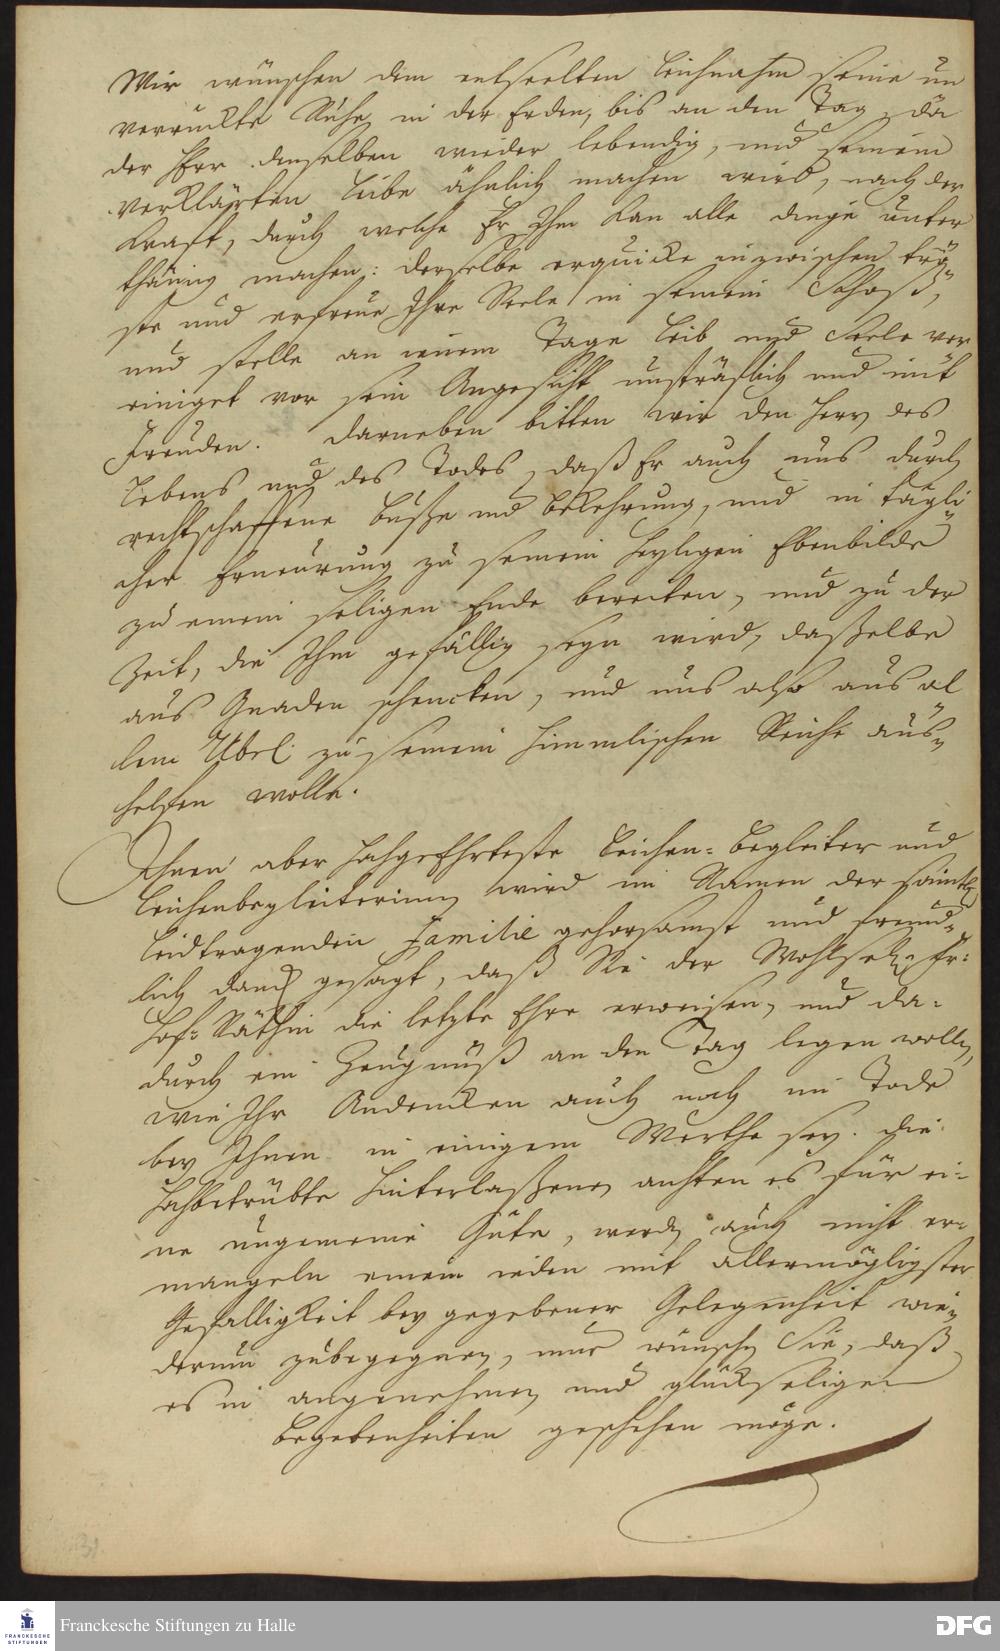 Wir wünschen dem entseelten Leichnahm seine un
verrückte Ruhe, in der Erden, bis an den Tag, da
der HErr denselben wieder lebendig, und seinem
verklärten Leibe ähnlich machen wird, nach der
Krafft, durch welche Er Ihm kan alle dinge unter
thänig machen: derselbe erquicke inzwischen trö„
ste und erfreue Ihre Seele in seinem Schoß,
und stelle an jenem Tage Leib und Seele ver
einiget vor sein Angesicht unsträflich und mit
Freuden. Darneben bitten wir den Herrn des
Lebens und des Todes, daß Er auch uns durch
rechtschaffene Buße und Bekehrung, und in tägli„
cher Erneurung zu seinem heyligen Ebenbilde
zu einem seligen Ende bereiten, und zu der
Zeit, die Ihm gefällig seyn wird, daßelbe
aus Gnaden schencken, und uns also aus al
lem Übel zu seinem himmlischen Reiche aus„
helfen wolle.
Ihnen aber Hochgeehrteste Leichen-Begleiter und
Leichenbegleiterinnen wird im Namen der sämtl.
leidtragenden Familie gehorsamst und freund„
lich danck gesagt, daß Sie der Wohlsel. Fr:
Hof-Räthin die letzte Ehre erweisen, und da-
durch ein Zeugnüß an den Tag legen wollen,
wie Ihr Andencken auch noch im Tode
bey Ihnen in einigem Werthe sey. die
Hochbetrübte Hinterlaßenen achten es für ei-
ne ungemeine Güte, werden auch nicht er-
mangeln einem jeden mit allermögligster
Gefälligkeit bey gegebener Gelegenheit wie„
derum zubegegnen, nur wünschen Sie, daß
es in angenehmen und glückseligen
Begebenheiten geschehen möge.
31
FRANCKESCHE STIFTUNGEN
Franckesche Stiftungen zu Halle
DFG